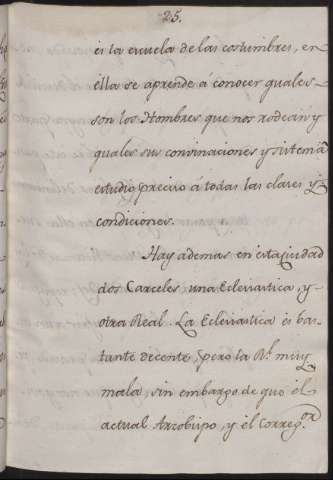 25.
es la escuela de las costumbres, en
ella se aprende á conocer quales
son los Hombres que nos rodean y
quales sus convinaciones y sistema
estudio preciso á todas las clases y
condiciones.
Hay ademas en esta ciudad
dos Carceles una Eclesiastica, y
otra Real. La Eclesiastica es bas-
tante decente, pero la Rl. muy
mala, sin embargo de que el
actual Arzobispo, y el Corregor.